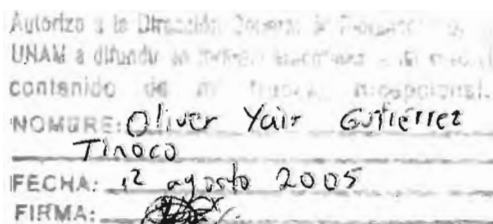 Autorizo a la Dirección General de
UNAM a difundir en
contenido de mi trabajo recepcional.
NOMBRE: Oliver Yair Gutiérrez
Tinoco
FECHA: 12 agosto 2005
FIRMA: